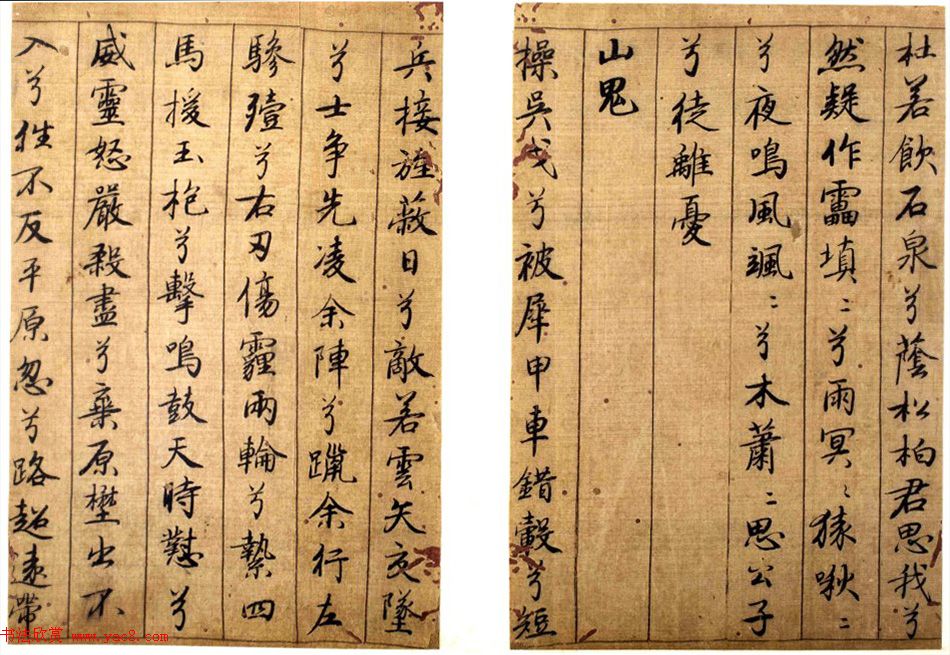 杜若飲石泉兮蔭松柏君思我兮
然疑作靁填〻兮雨冥〻猨啾〻
兮夜鳴風颯〻兮木蕭〻思公子
兮徒離憂
山鬼
操吳戈兮被犀甲車錯轂兮短
兵接旌蔽日兮敵若雲矢交墜
兮士争先凌余陣兮躐余行左
驂殪兮右刃傷霾兩輪兮縶四
馬援玉枹兮擊鳴鼓天時懟兮
威靈怒嚴殺盡兮棄原壄出不
入兮往不反平原忽兮路超遠帶
书法欣赏 www.yac8.com